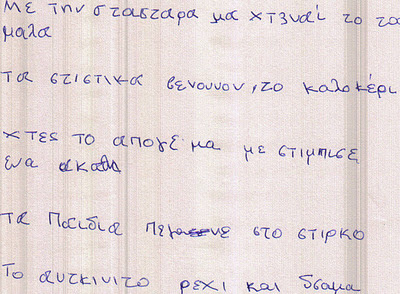 με την στασταρα μα χτεναί το τα
μαλα
τα στιστικα βενουνον, το καλοκέρι
χτες το απογέ μα με στιμπισε
ενα ακαθι
τα Παιδια πεγαενε στο στιρκο
Το αυτκινιτο ρεχι και